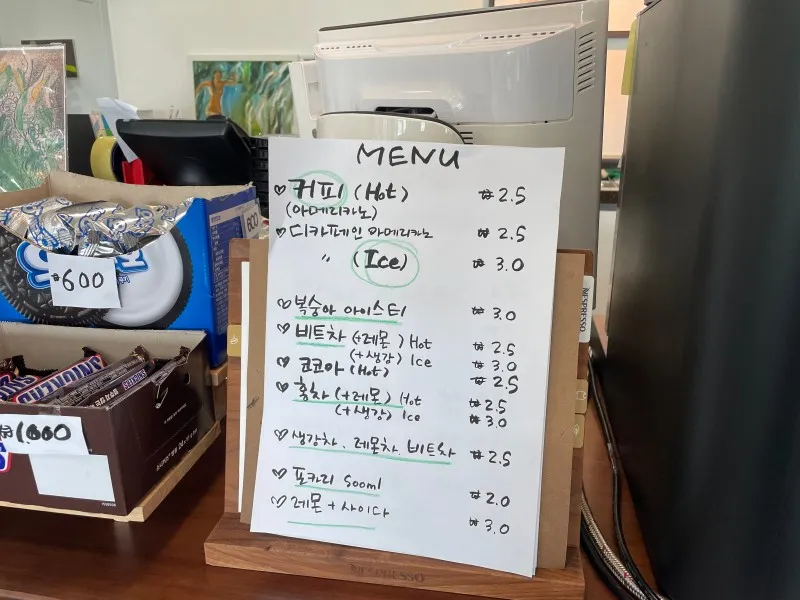 MENU
♡ 커피 (Hot) ₩ 2.5
(아메리카노)
♡ 디카페인 아메리카노 ₩ 2.5
〃 (Ice) ₩ 3.0
♡ 복숭아 아이스티 ₩ 3.0
♡ 비트차 (+레몬) Hot ₩ 2.5
(+생강) Ice ₩ 3.0
♡ 코코아 (Hot) ₩ 2.5
♡ 홍차 (+레몬) Hot ₩ 2.5
(+생강) Ice ₩ 3.0
♡ 생강차. 레몬차. 비트차 ₩ 2.5
♡ 포카리 500ml ₩ 2.0
♡ 레몬 + 사이다 ₩ 3.0
NESPRESSO
NESPRESSO
₩600
600
₩1,000
SNICKERS